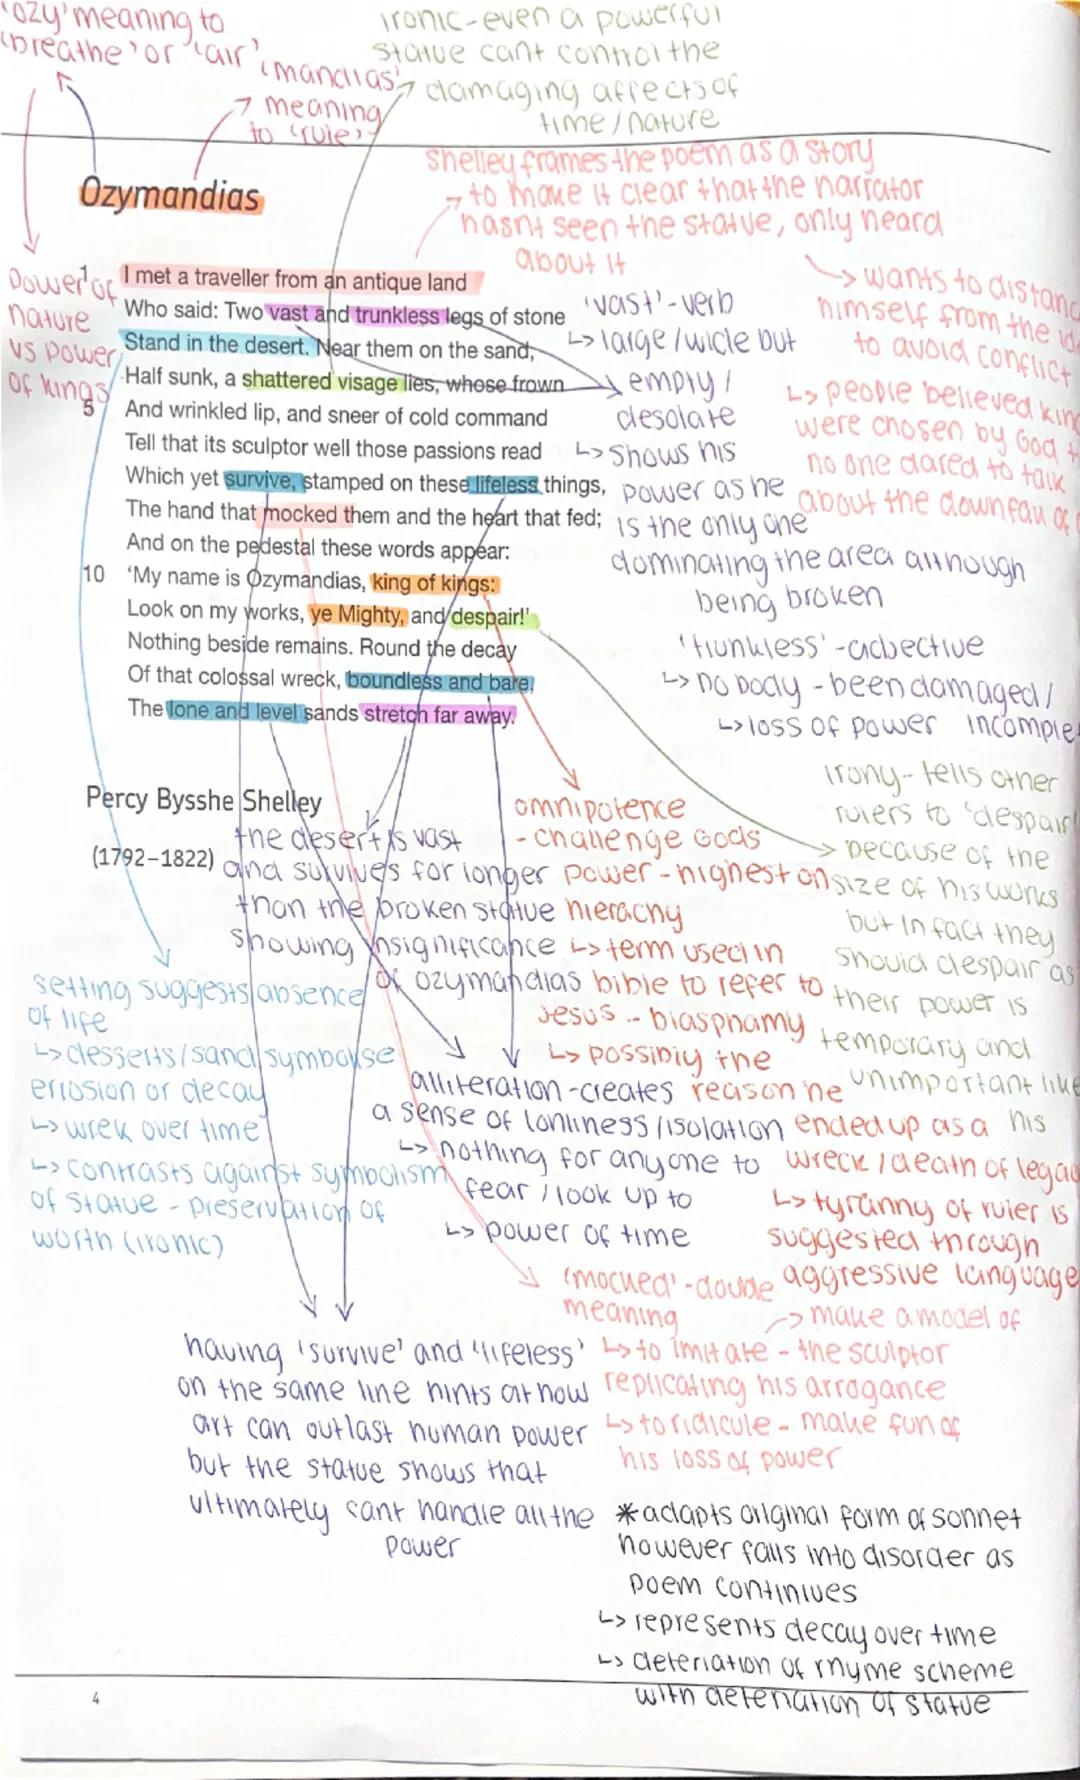 'ozy' meaning to
'breathe' or 'air'
'mandias'
meaning
to 'rule'
ironic - even a powerful
statue cant control the
damaging affects of
time/nature
Shelley frames the poem as a story
to make it clear that the narrator
hasnt seen the statue, only heard
about it
Ozymandias
Power of
nature
vs power
of kings
wants to
himself from the
to avoid conflict
people believed
were chosen by God
no one dared to talk
about the downfall of
1 I met a traveller from an antique land
Who said: Two vast and trunkless legs of stone
Stand in the desert. Near them on the sand,
Half sunk, a shattered visage lies, whose frown
5 And wrinkled lip, and sneer of cold command
Tell that its sculptor well those passions read
Which yet survive, stamped on these lifeless things,
The hand that mocked them and the heart that fed;
And on the pedestal these words appear:
10 'My name is Ozymandias, king of kings:
Look on my works, ye Mighty, and despair!'
Nothing beside remains. Round the decay
Of that colossal wreck, boundless and bare,
The lone and level sands stretch far away.
'vast' - verb
large/wide but
empty/
desolate
shows his
power as he
is the only one
dominating the area although
being broken
'trunkless' - adjective
no body - been damaged/
loss of power
Percy Bysshe Shelley
(1792–1822)
the desert is vast
and survives for longer
than the broken statue
showing insignificance
of ozymandias
omnipotence
- challenge Gods
power - highest on
hierachy
term used in
bible to refer to
Jesus - blasphamy
possibly the
reason he
ended up as a
wreck/death of
tyranny of ruler is
suggested through
aggressive language
irony - tells other
rulers to 'despair'
because of the
size of his works
but in fact they
should despair as
their power is
temporary and
unimportant like
his
setting suggests absence
of life
desserts/sand symbolise
errosion or decay
wrek over time
contrasts against symbolism
of statue - preservation of
worth (ironic)
alliteration - creates
a sense of lonliness/isolation
nothing for anyone to
fear/look up to
power of time
'mocked' - double
meaning
make a model of
to imitate - the sculptor
replicating his arrogance
to ridicule - make fun of
his loss of power
having 'survive' and 'lifeless'
on the same line hints at how
art can outlast human power
but the statue shows that
ultimately cant handle all the
power
*adapts original form of sonnet
however falls into disorder as
poem continues
represents decay over time
deteriation of rhyme scheme
with deteriation of statue
4